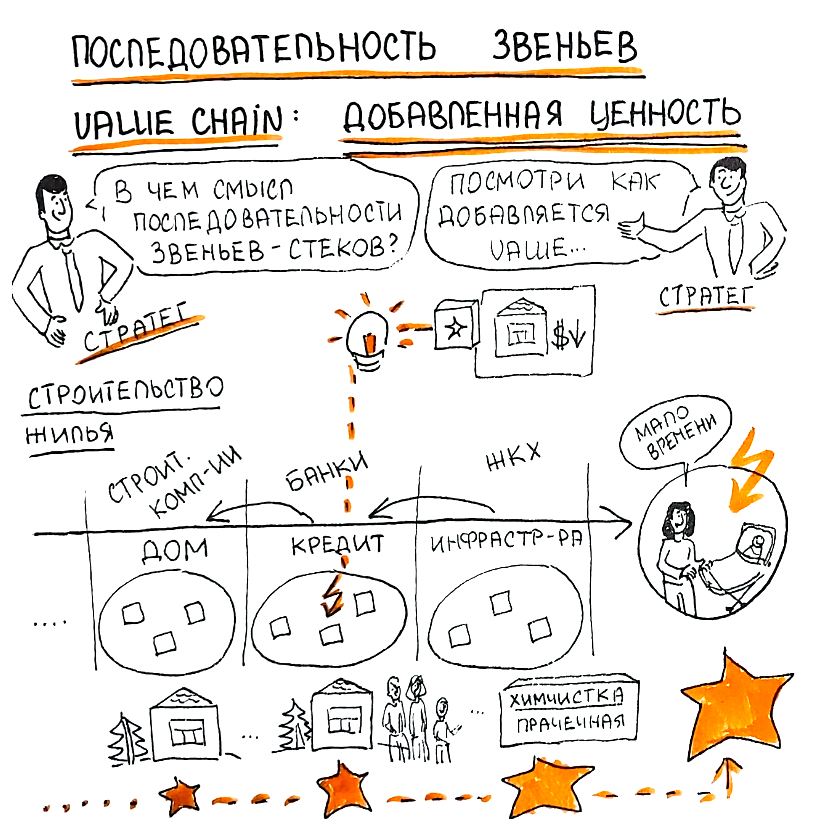 ПОСЛЕДОВАТЕЛЬНОСТЬ ЗВЕНЬЕВ
VALUE CHAIN: ДОБАВЛЕННАЯ ЦЕННОСТЬ
В ЧЕМ СМЫСЛ
ПОСЛЕДОВАТЕЛЬНОСТИ
ЗВЕНЬЕВ-СТЕКОВ?
ПОСМОТРИ КАК
ДОБАВЛЯЕТСЯ
VALUE...
СТРАТЕГ
СТРАТЕГ
$
СТРОИТЕЛЬСТВО
ЖИЛЬЯ
МАЛО
ВРЕМЕНИ
СТРОИТ.
КОМП-ИИ
БАНКИ
ЖКХ
ДОМ
КРЕДИТ
ИНФРАСТР-РА
....
...
...
ХИМЧИСТКА
ПРАЧЕЧНАЯ